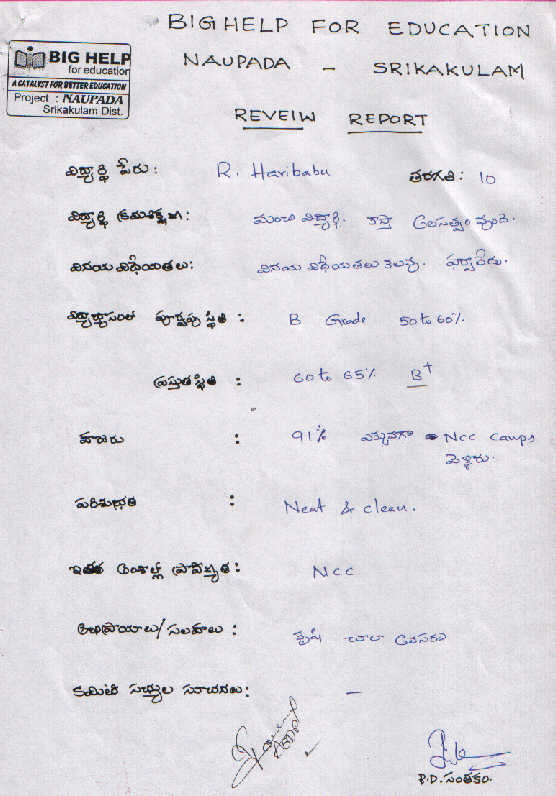 BIG HELP FOR EDUCATION
NAUPADA - SRIKAKULAM
BIG HELP
for education
A CATALYST FOR BETTER EDUCATION
Project : NAUPADA
Srikakulam Dist.
REVEIW REPORT
విద్యార్థి పేరు: R. Haribabu తరగతి: 10
విద్యార్థి క్రమశిక్షణ: మంచి విద్యార్థి. కాస్త వుంది.
వినయ విధేయతలు: వినయ విధేయతలు కలవు.
విద్యాభ్యాసంలో పూర్వపు స్థితి : B Grade 50 to 60%
ప్రస్తుత స్థితి : 60 to 65% B+
హాజరు : 91% ఎక్కువగా Ncc camps
వెళ్ళారు.
పరిశుభ్రత : Neat & clean.
ఇతర అంశాల్లో ప్రావీణ్యత: Ncc
అభిప్రాయాలు/సలహాలు: కృషి చాలా అవసరం
కమిటీ సభ్యుల సూచనలు: -
P.D. సంతకం.